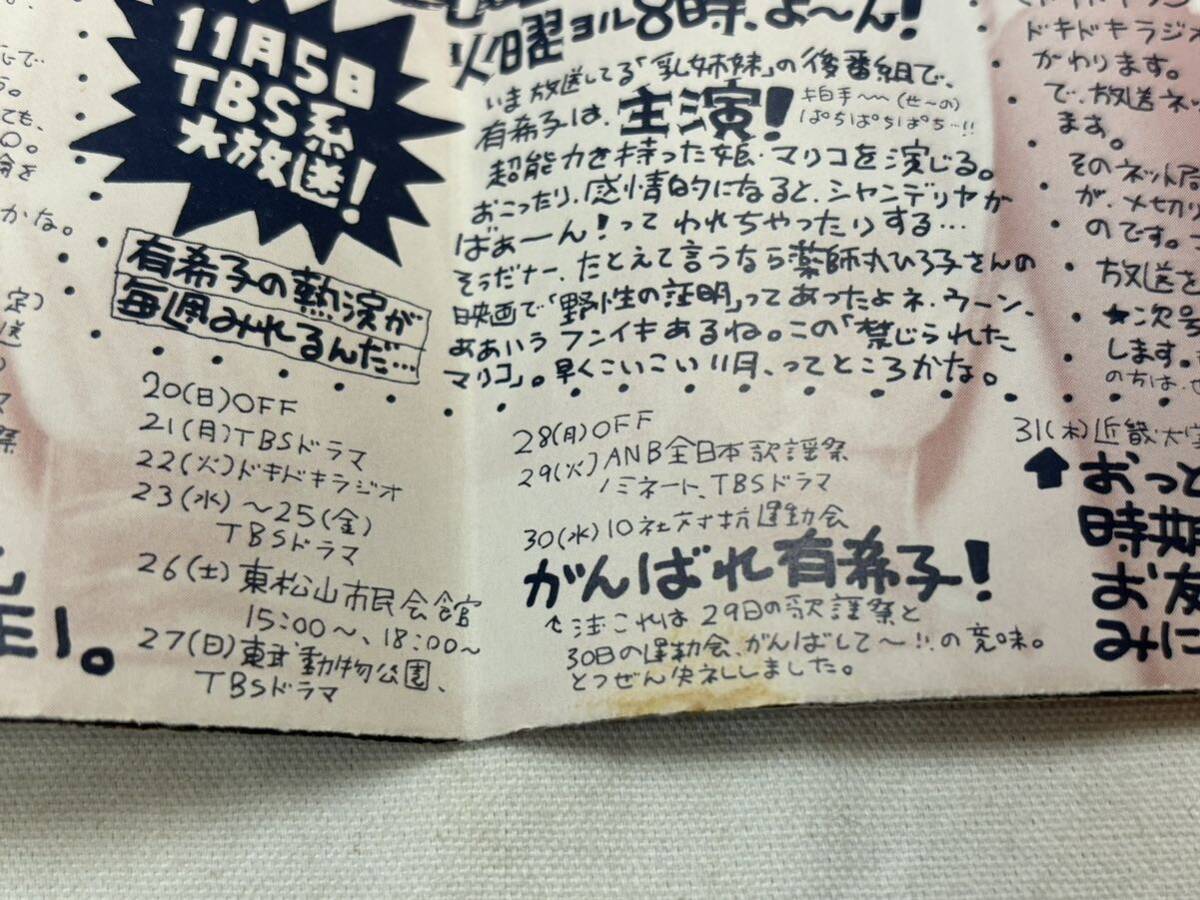 11月5日
TBS系
大放送!
有希子の熱演が
毎週みれるんだ…
火曜ヨル8時、よ〜ん!
いま放送してる「乳姉妹」の後番組で、
有希子は、主演!
拍手〜〜(せ〜の)
ぱちぱちぱちぱち…!!
超能力を持った娘・マリコを演じる。
おこったり、感情的になると、シャンデリヤが
ばぁーん!ってわれちゃったりする…
そうだナー、たとえて言うなら薬師丸ひろ子さんの
映画で「野性の証明」ってあったよネ、ウーン、
ああいうフンイキあるね。この「禁じられた
マリコ」。早くこいこい11月、ってところかな。
20(日)OFF
21(月)TBSドラマ
22(火)ドキドキラジオ
23(水)〜25(金)
TBSドラマ
26(土)東松山市民会館
15:00〜、18:00〜
27(日)東武動物公園、
TBSドラマ
28(月)OFF
29(火)ANB全日本歌謡祭
ノミネート、TBSドラマ
30(水)10社対抗運動会
がんばれ有希子!
↑注これは29日の歌謡祭と
30日の運動会、がんばして〜!!の意味。
とつぜん失ネレしました。
31(木)近畿大学
おっと
時期
お友
みに
ドキドキラジオ
かわります。
で、放送ネッ
ます。
そのネット局
が、〆切り
のです。
放送を
★次号
します。
の方は、せ
かな。